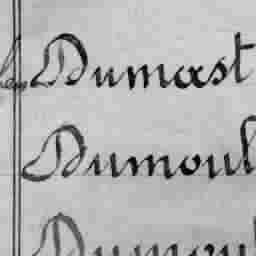 Dumast
Dumoul
Dumoul